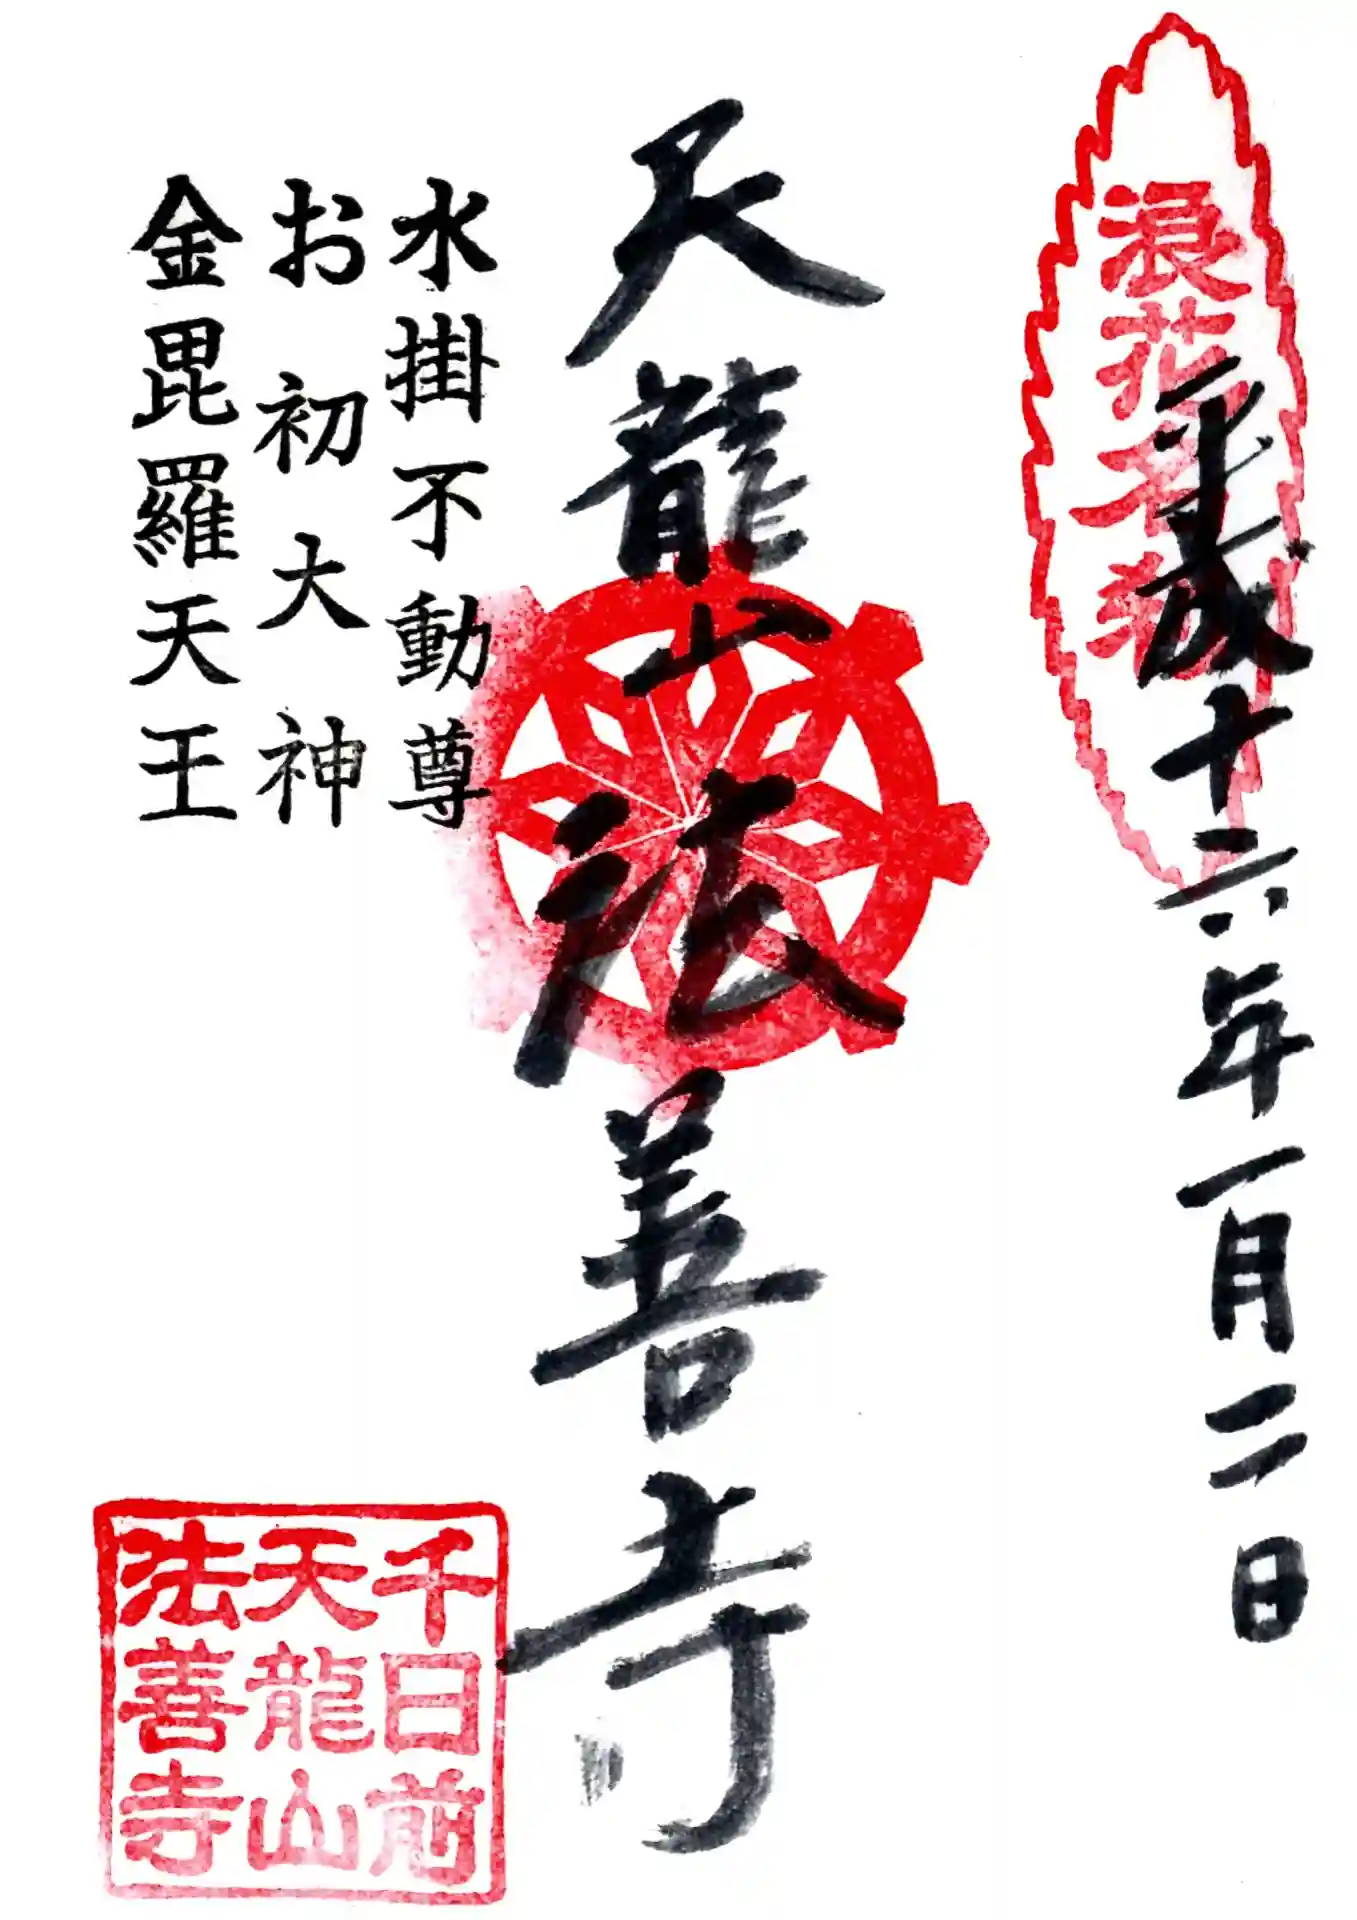 浪花名刹
平成十六年一月二日
天龍山法善寺
水掛不動尊
お初大神
金毘羅天王
千日前
天龍山
法善寺